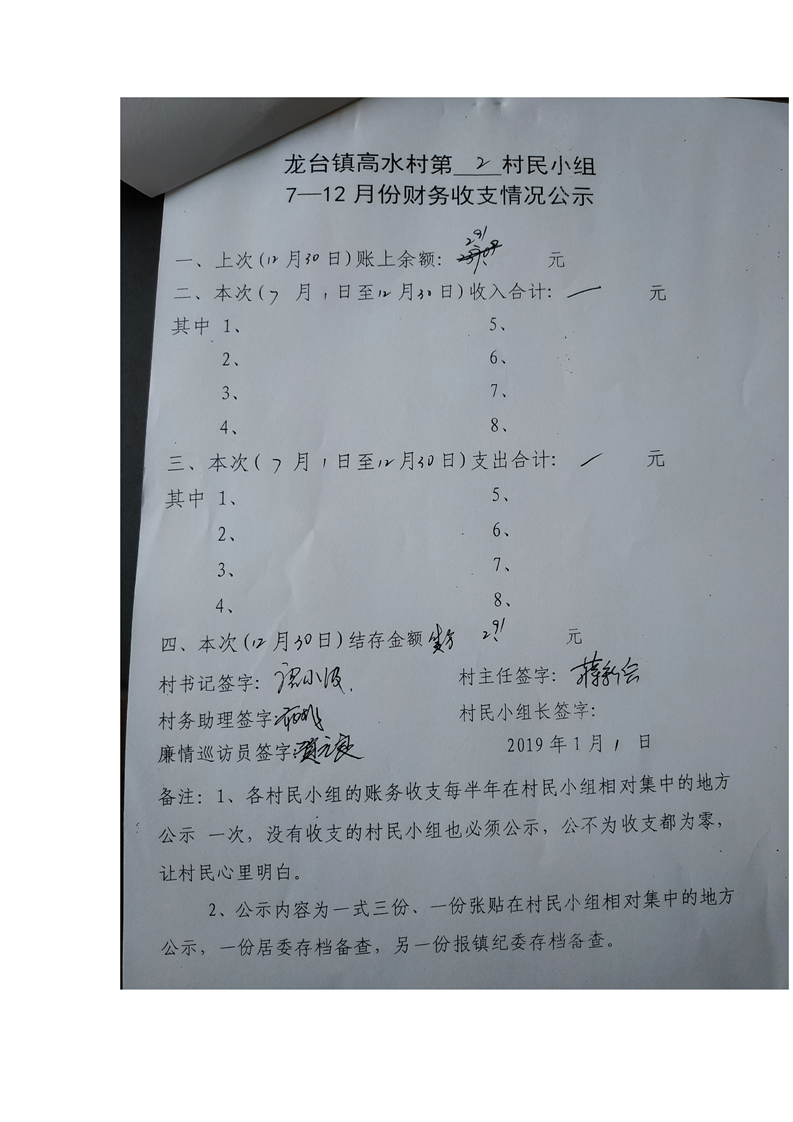 龙台镇高水村第 2 村民小组
7—12月份财务收支情况公示
一、上次(12月30日)账上余额: 291 元
二、本次(7月1日至12月30日)收入合计: 一 元
其中 1、 5、
2、 6、
3、 7、
4、 8、
三、本次(7月1日至12月30日)支出合计: 一 元
其中 1、 5、
2、 6、
3、 7、
4、 8、
四、本次(12月30日)结存金额 291 元
村书记签字: 村主任签字: 蒋新会
村务助理签字: 村民小组长签字:
廉情巡访员签字: 2019年1月1日
备注: 1、各村民小组的账务收支每半年在村民小组相对集中的地方
公示 一次，没有收支的村民小组也必须公示，公不为收支都为零，
让村民心里明白。
2、公示内容为一式三份、一份张贴在村民小组相对集中的地方
公示，一份居委存档备查，另一份报镇纪委存档备查。